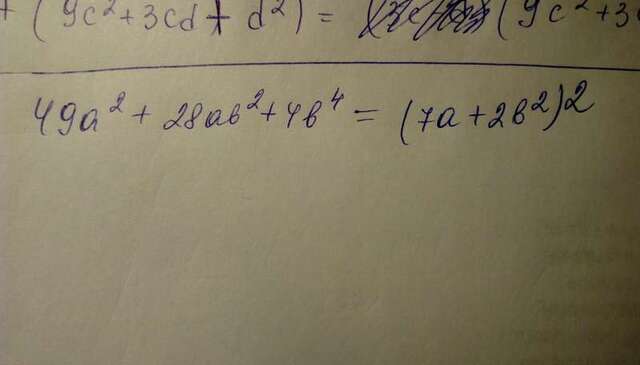 + (9c²+3cd+d²) = (9c²+3
49a² + 28ab² + 4b⁴ = (7a+2b²)²